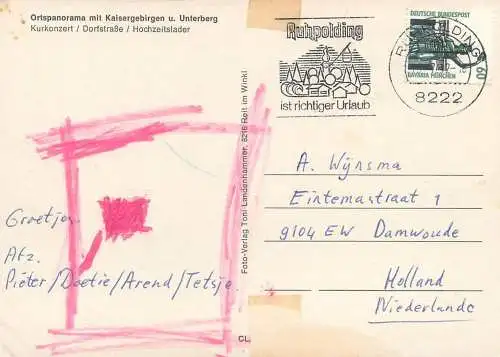 Ortspanorama mit Kaisergebirgen u. Unterberg
Kurkonzert / Dorfstraße / Hochzeitslader
Groetjes
Afz.
Pieter/Doetie/Arend/Tetsje
Foto-Verlag Toni Landenhammer, 8216 Reit im Winkl
CL
Ruhpolding
ist richtiger Urlaub
DEUTSCHE BUNDESPOST
60
BAVARIA MÜNCHEN
RUHPOLDING
8222
A. Wijnsma
Eintemastraat 1
9104 EW Damwoude
Holland
Niederlande